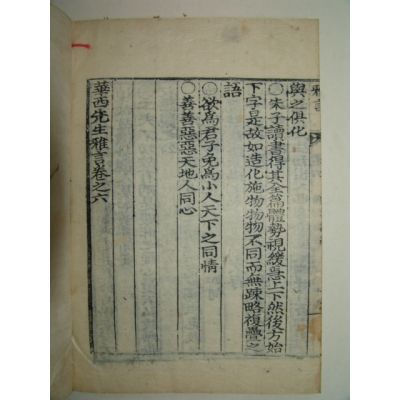 與之俱化
○朱子讀書得其全篇體勢視緩急上下然後方始
下字是故如造化施物物物不同而無疎略複疊之
語
○欲爲君子免爲小人天下之同情
○善善惡惡天地人同心
華西先生雅言卷之六